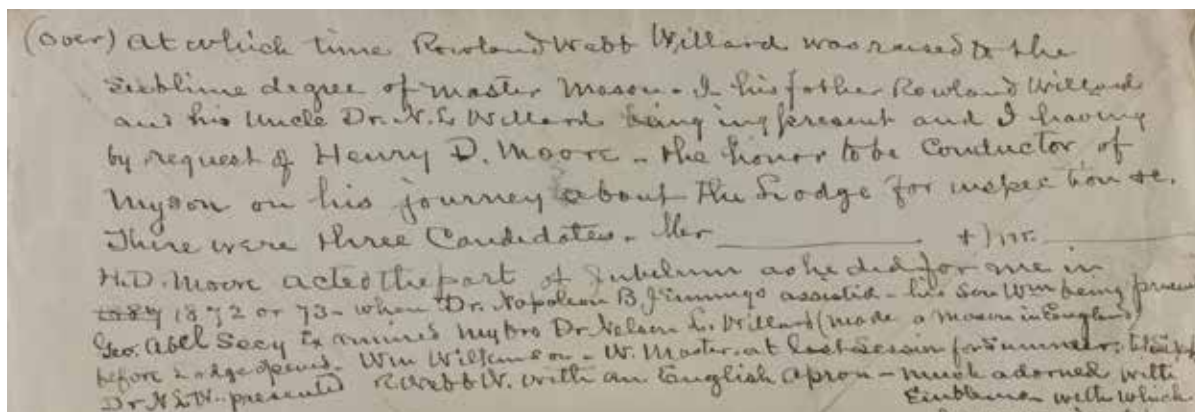 (over) At which time Rowland Webb Willard was raised to the
Sublime degree of Master Mason - I his father Rowland Willard
and his Uncle Dr. N. L. Willard being present and I having
by request of Henry D. Moore - the honor to be Conductor of
my son on his journey about the Lodge for inspection &c.
There were three Candidates. Mr ________ & Mr. ________
H. D. Moore acted the part of Jubelum as he did for me in
1887 1872 or 73 - when Dr. Napoleon B. Jennings assisted - his son Wm being present
Geo. Abel Secy Examined my Bro Dr Nelson L. Willard (made a Mason in England)
before Lodge opened. Wm Wilkinson - W. Master. at last session for Summer.
Dr N L W. presented R Webb W. with an English Apron - much adorned with
Emblems with which